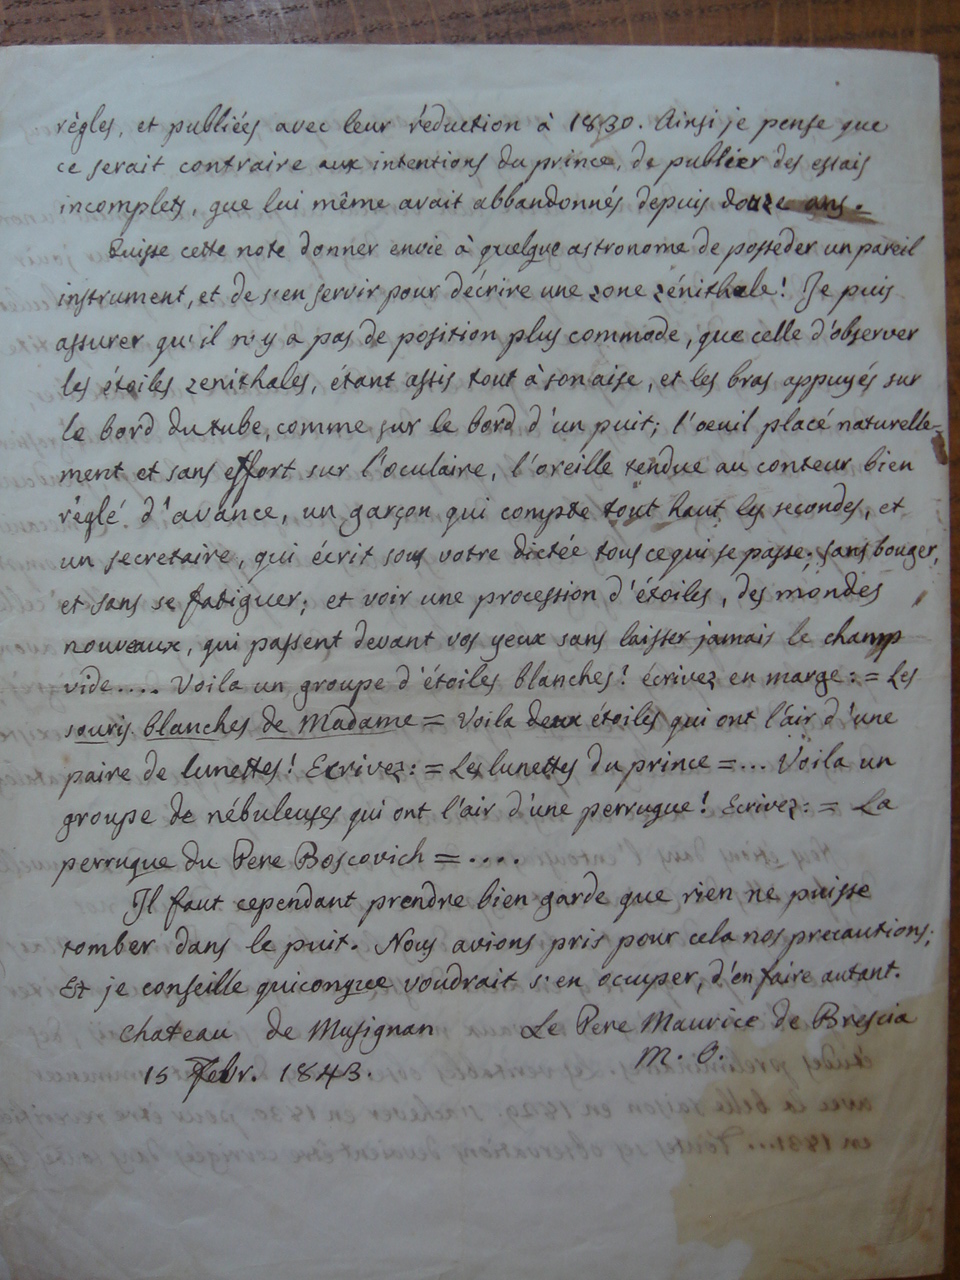 règles, et publiées avec leur réduction à 1830. Ainsi je pense que
ce serait contraire aux intentions du prince, de publier des essais
incomplets, que lui même avait abbandonnés depuis douze ans.
Puisse cette note donner envie à quelque astronome de posseder un pareil
instrument, et de s'en servir pour décrire une zone zénithale! Je puis
assurer qu'il n'y a pas de position plus commode, que celle d'observer
les étoiles zenithales, étant assis tout à son aise, et les bras appuyés sur
le bord du tube, comme sur le bord d'un puit; l'oeuil placé naturelle=
ment et sans effort sur l'oculaire, l'oreille tendue au conteur bien
règlé d'avance, un garçon qui compte tout haut les secondes, et
un secretaire, qui écrit sous votre dictée tous ce qui se passe; sans bouger,
et sans se fatiguer; et voir une procession d'étoiles, des mondes
nouveaux, qui passent devant vos yeux sans laisser jamais le champ
vide.... Voila un groupe d'étoiles blanches! écrivez en marge: = Les
souris blanches de Madame = Voila deux étoiles qui ont l'air d'une
paire de lunettes! Ecrivez: = Les lunettes du prince =... Voila un
groupe de nébuleuses qui ont l'air d'une perruque! Ecrivez: = La
perruque du Pere Boscovich = ....
Il faut cependant prendre bien garde que rien ne puisse
tomber dans le puit. Nous avions pris pour cela nos precautions;
Et je conseille quiconque voudrait s'en occuper, d'en faire autant.
Chateau de Musignan Le Pere Maurice de Brescia
15 Febr. 1843. M. O.